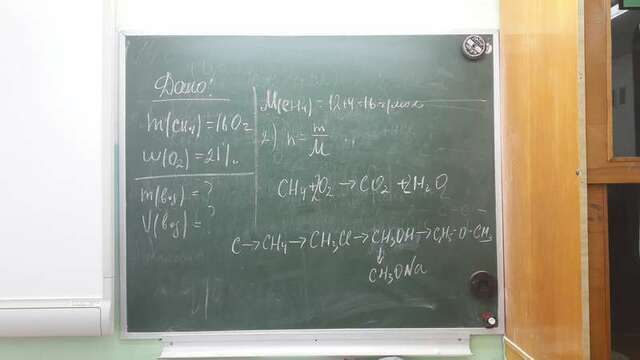 Дано:
m(CH4) = 160г
w(O2) = 21%
m(воз) = ?
V(воз) = ?
M(CH4) = 12+4 = 16 г/моль
2) n = m/M
CH4 + 2O2 → CO2 + 2H2O
C → CH4 → CH3Cl → CH3OH → CH3-O-CH3
↓
CH3ONa